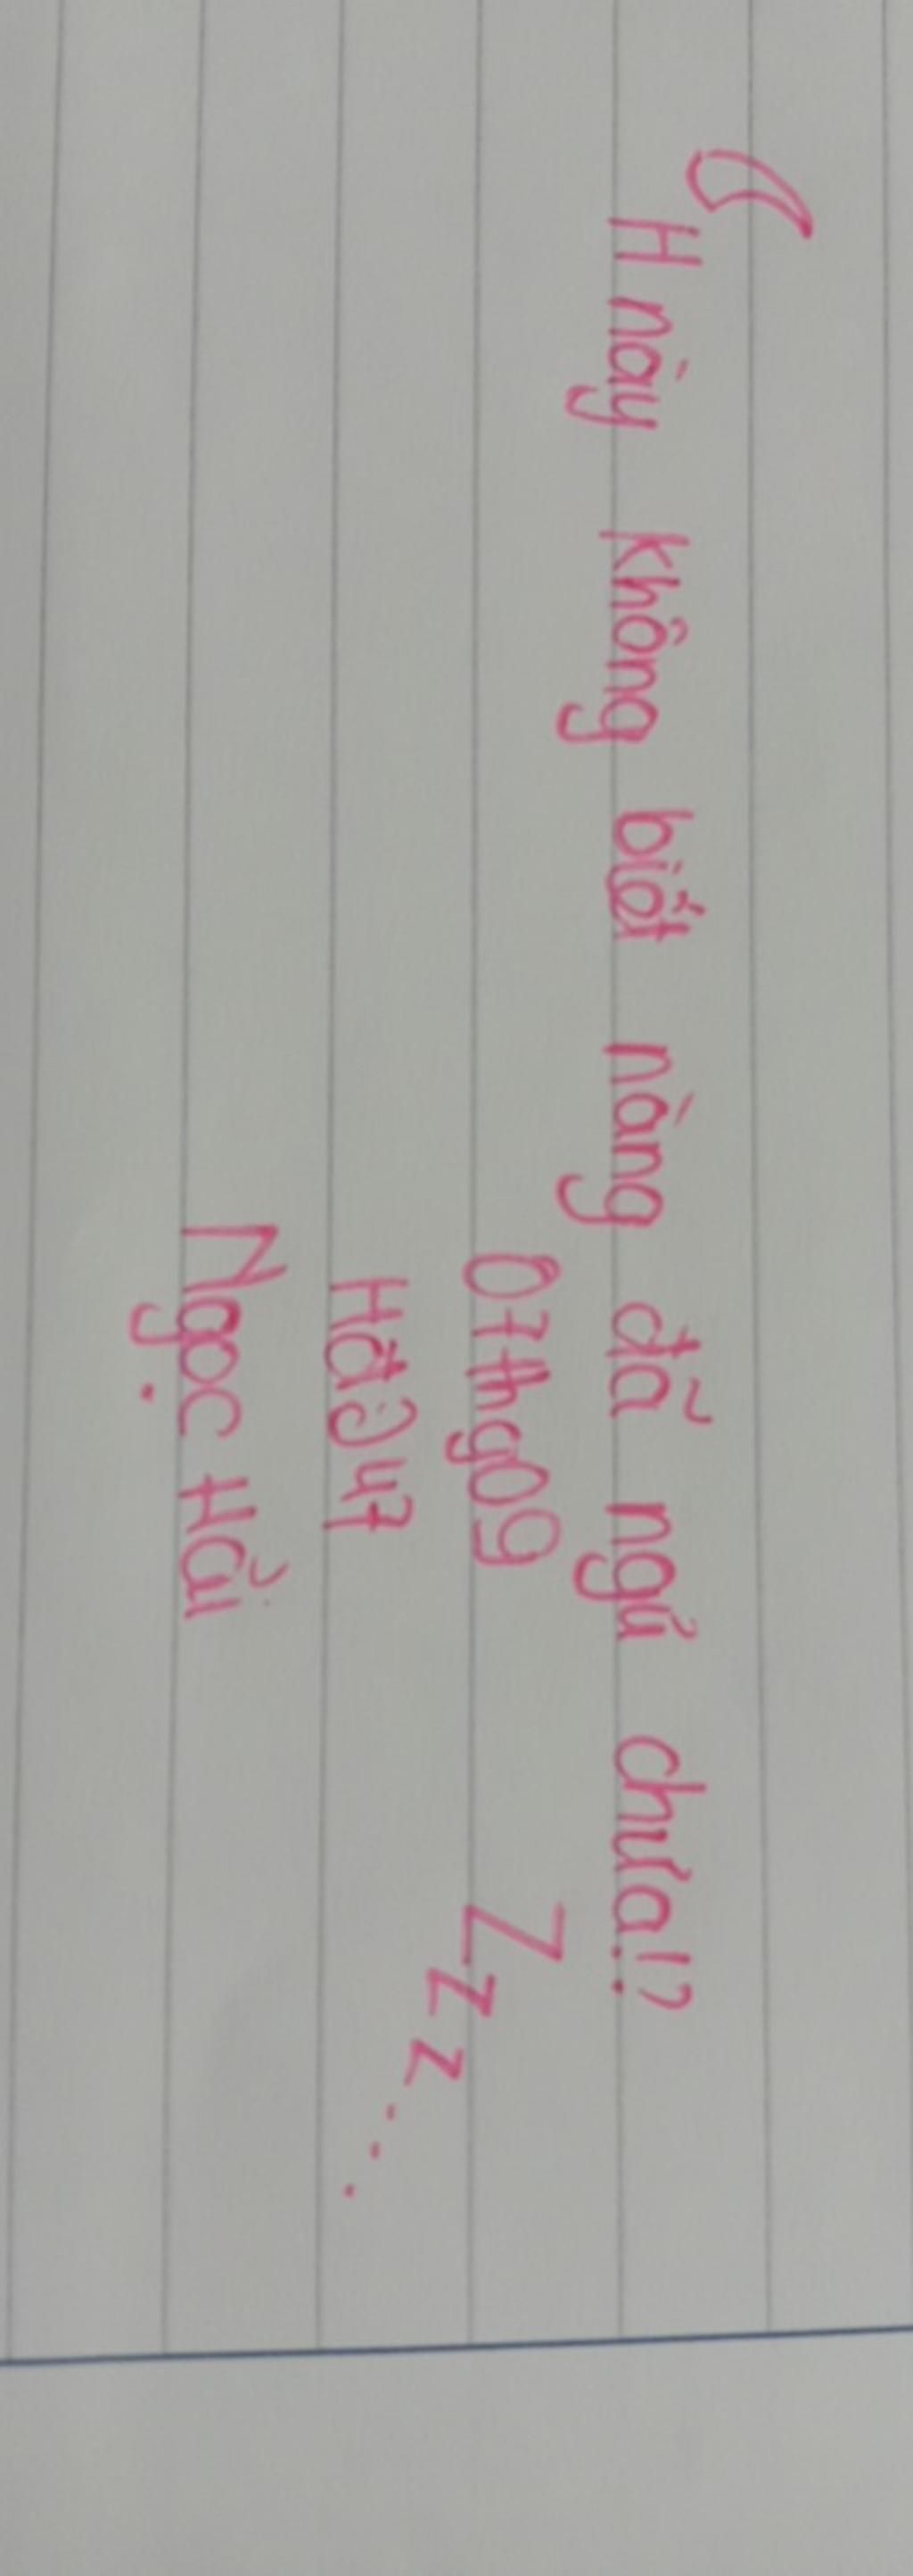 H này không biết nàng đã ngủ chưa!?
07thg09
Zzz...
Ngọc Hải